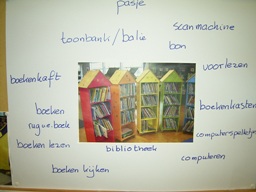 pasje
scanmachine
toonbank/balie
bon
voorlezen
boekenkaft
boeken
boekenkasten
rugue boek
computerspelletje
boeken lezen
bibliotheek
computeren
boeken kijken